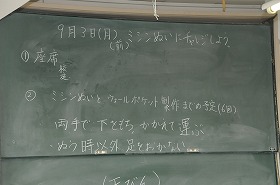 9月3日(月) ミシンぬいにチャレンジしよう
(前)
① 座席
② ミシンぬいとウォールポケット製作まとめ予定(6回)
両手で下をもち かかえて運ぶ
・ぬう時以外足をおかない